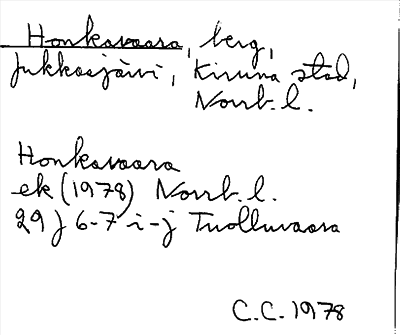 Honkavaara, berg,
Jukkasjärvi, Kiruna stad,
Norrb. l.
Honkavaara
ek (1978) Norrb. l.
29 J 6-7 i-j Tuolluvaara
C.C. 1978